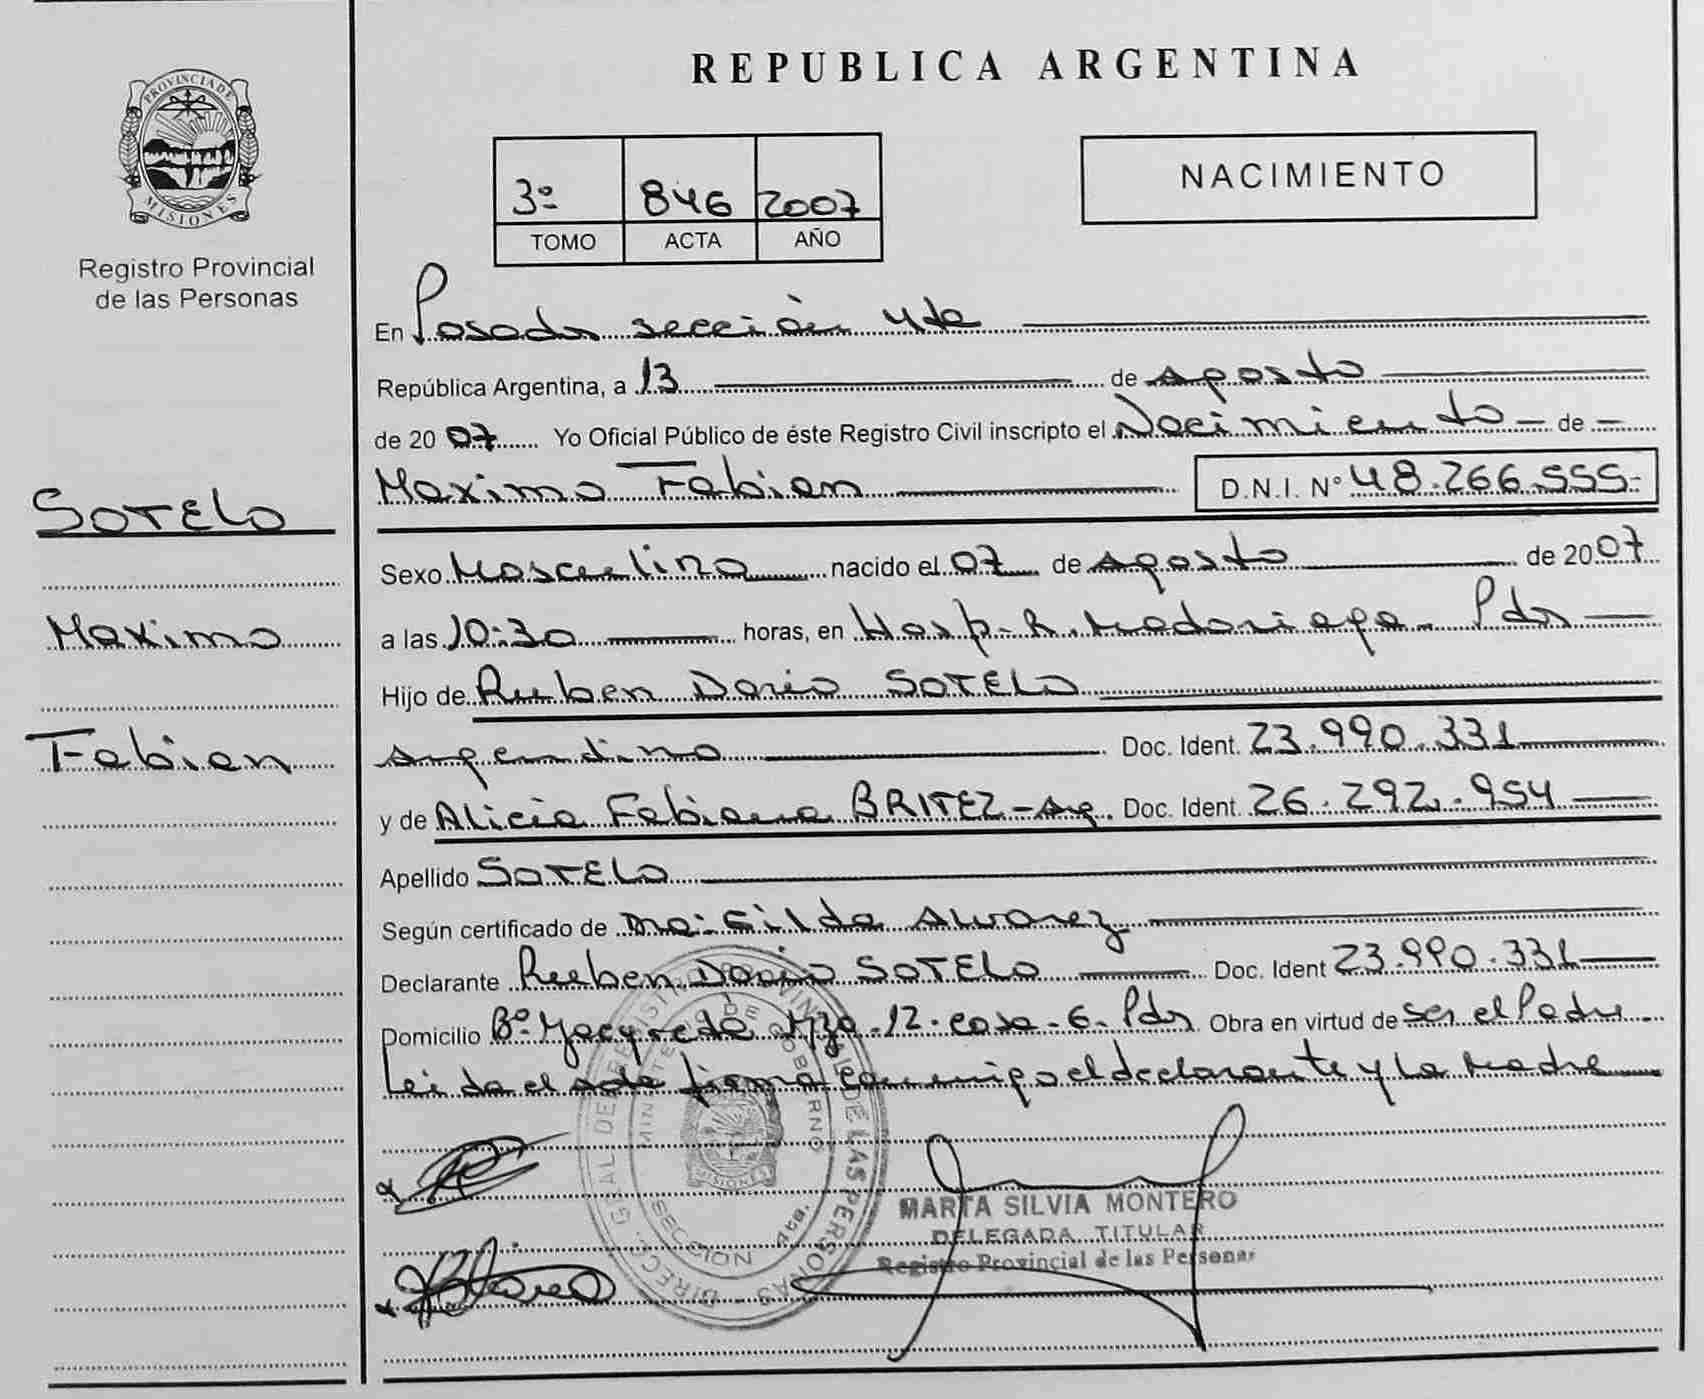 PROVINCIA DE
MISIONES
Registro Provincial
de las Personas
SOTELO
Maximo
Fabian
REPUBLICA ARGENTINA
3º 846 2007
TOMO ACTA AÑO
NACIMIENTO
En Posadas sección 4ta
República Argentina, a 13 de Agosto
de 20 07 Yo Oficial Público de éste Registro Civil inscripto el Nacimiento - de -
Maximo Fabian D.N.I. Nº 48.266.555-
Sexo Masculino nacido el 07 de Agosto de 20 07
a las 10:30 horas, en Hosp. R. Madariaga - Pdas
Hijo de Ruben Dario SOTELO
Argentino Doc. Ident. 23.990.331
y de Alicia Fabiana BRITEZ - Arg. Doc. Ident. 26.292.954
Apellido SOTELO
Según certificado de Ma. Gilda Alvarez
Declarante Ruben Dario SOTELO Doc. Ident 23.990.331
Domicilio Bº Yacyreta Mza - 12 - casa - 6 - Pdas Obra en virtud de ser el Padre -
Leida el acta firma conmigo el declarante y la Madre
DIRECC. GRAL. DE REGISTRO PROVINCIAL DE LAS PERSONAS
MINISTERIO DE GOBIERNO
MISIONES
SECCION 4ta.
MARTA SILVIA MONTERO
DELEGADA TITULAR
Registro Provincial de las Personas